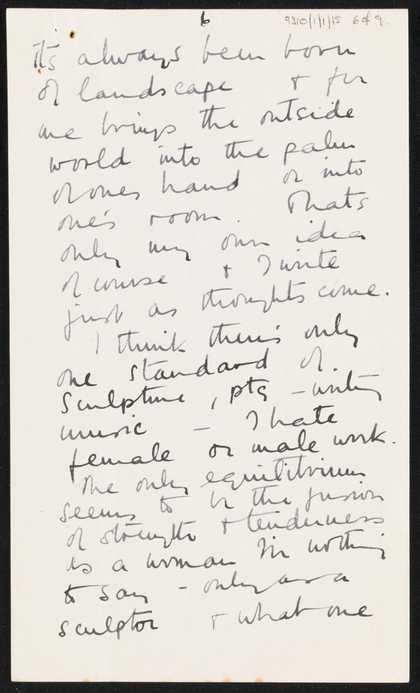 6
9310/1/1/15 6 of 9.
it's always been born
of landscape & for
me brings the outside
world into the palm
of ones hand or into
one's room. Thats
only my own idea
of course & I write
just as thoughts come.
I think there's only
one standard of.
Sculpture, ptg - writing
music - I hate
female or male work.
The only equilibrium
seems to be the fusion
of strength & tenderness
as a woman I'm nothing
to say - only as a
sculptor & what one